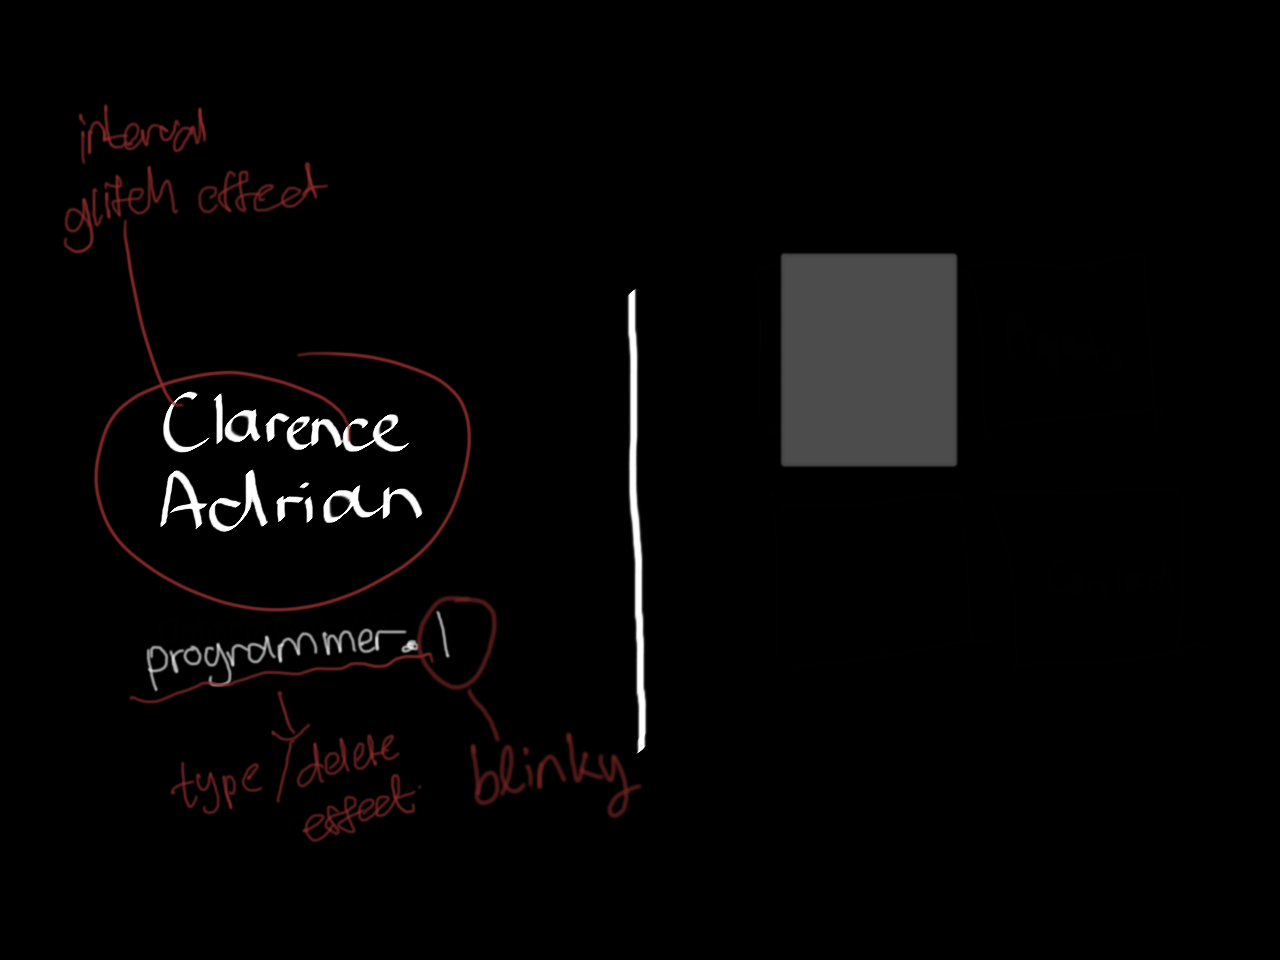 interval
glitch effect
Clarence
Adrian
programmer.|
type/delete
effect.
blinky